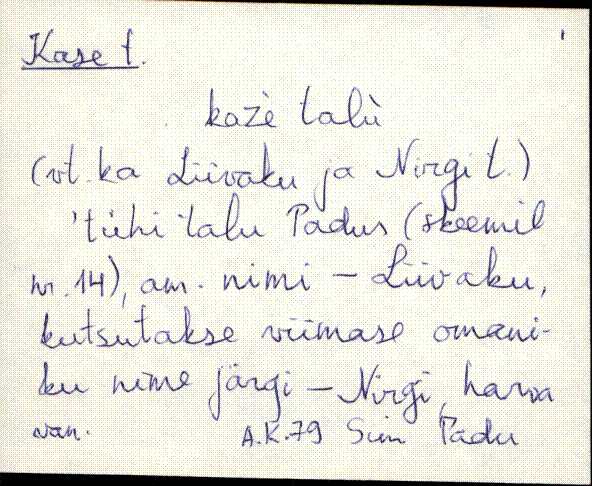 Kase t.
kažè talù
(vt. ka Liivaku ja Nirgi t.)
'tühi talu Padus (skeemil
nr. 14), am. nimi – Liivaku,
kutsutakse viimase omani-
ku nime järgi – Nirgi, harva
van. A.K.79 Siim Padu